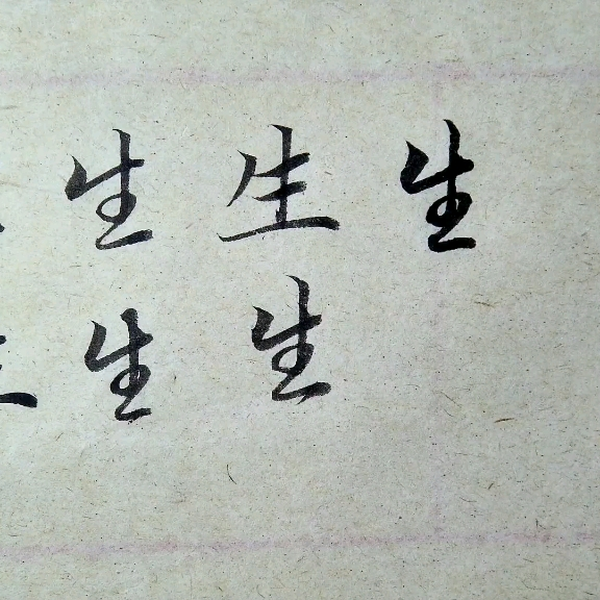 生 生 生
生 生